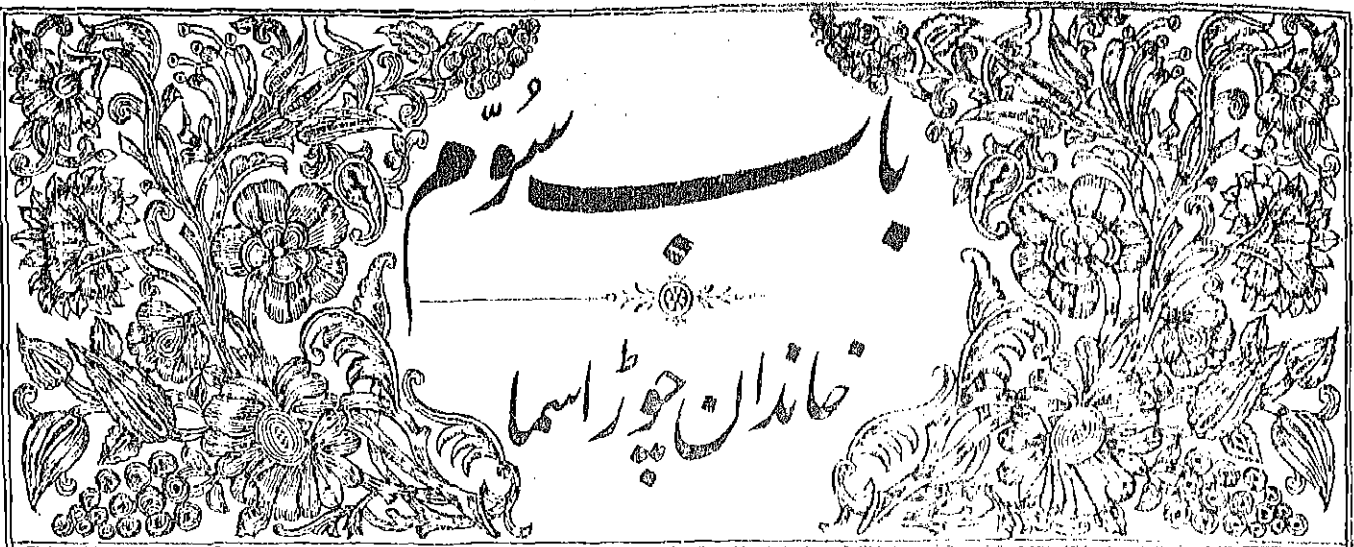 باب سُوّم
خاندان چوڑاسما